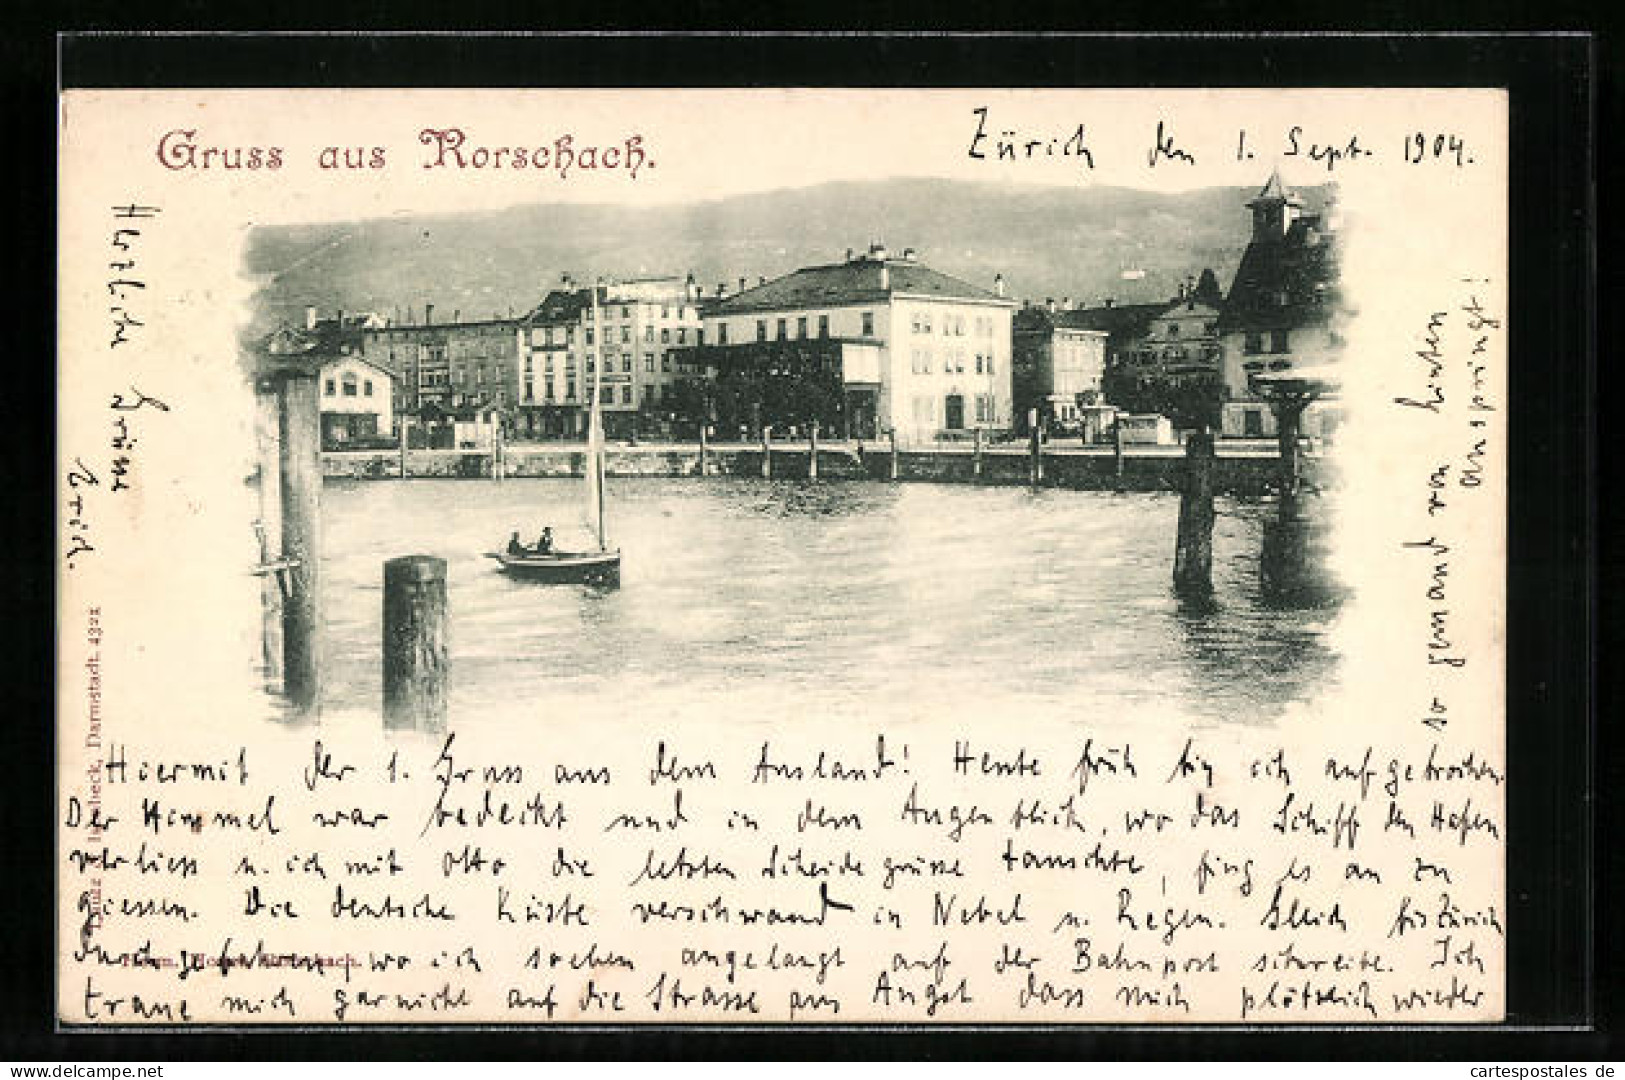 Gruss aus Rorschach.
Zürich den 1. Sept. 1904.
Hiermit der 1. Gruss aus dem Ausland! Heute früh bin ich aufgebrochen.
Der Himmel war bedeckt und in dem Augenblick, wo das Schiff den Hafen
verliess u. ich mit Otto die letzten Scheidegrüsse tauschte, fing es an zu
giessen. Die deutsche Küste verschwand in Nebel u. Regen. Gleich bis Zürich
durchgefahren, wo ich soeben angelangt auf der Bahnpost schreibe. Ich
traue mich garnicht auf die Strasse aus Angst dass mich plötzlich wieder
so jemand von hinten
anspringt!
Herzliche Grüsse
Erich.
Darmstadt. 4321
cartespostales de